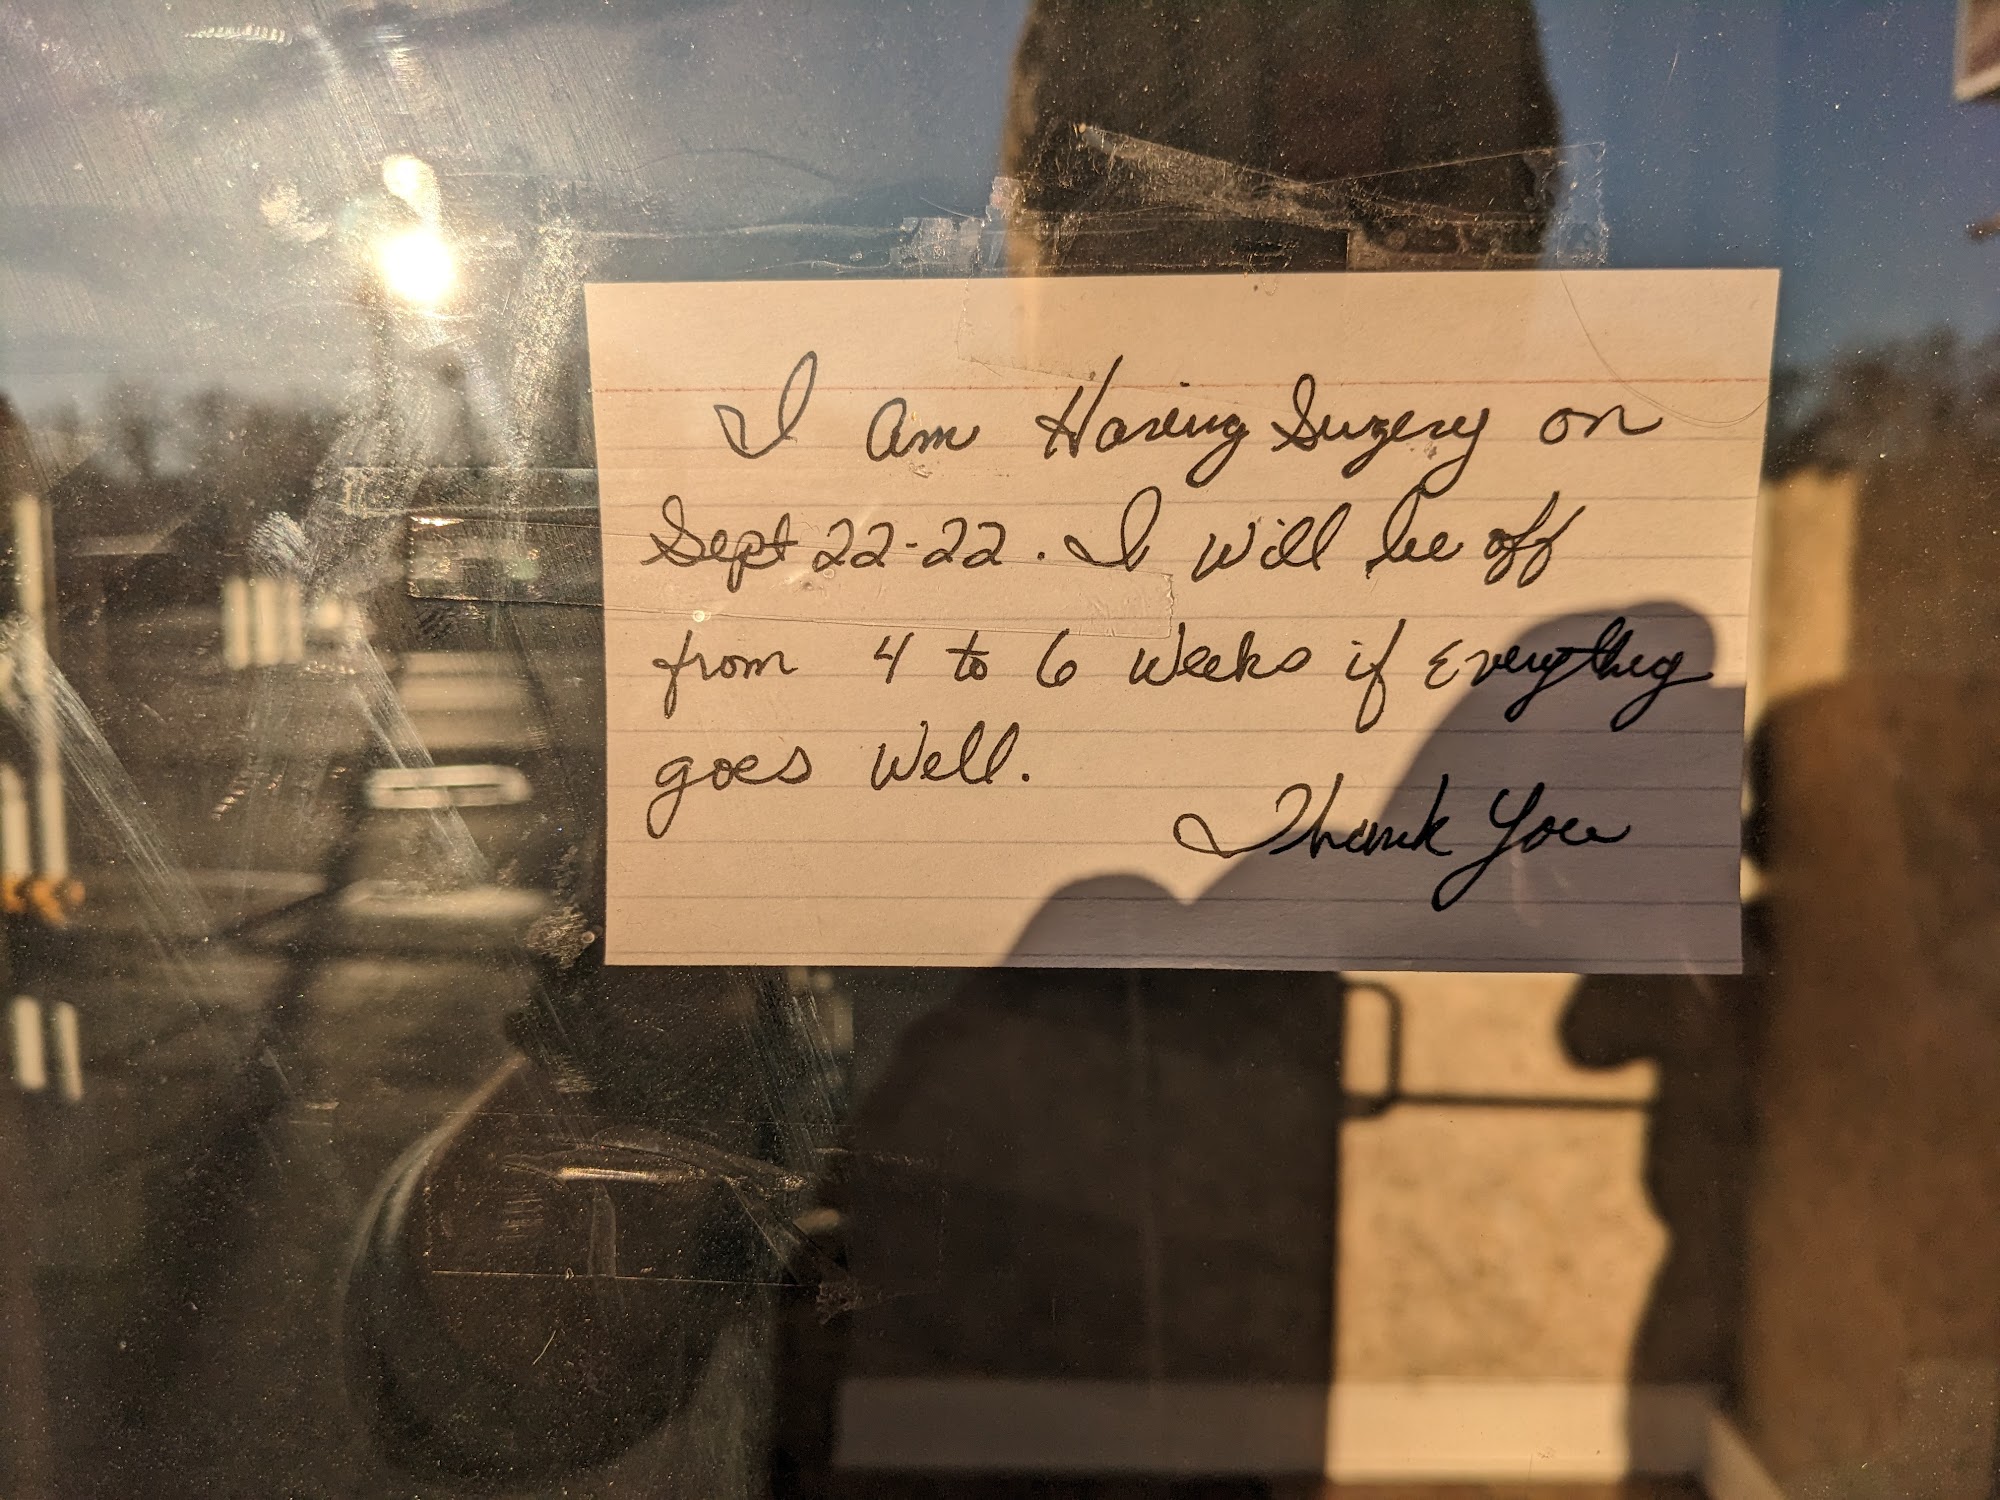 I am Having Surgery on
Sept 22-22. I will be off
from 4 to 6 weeks if Everything
goes well.
Thank You